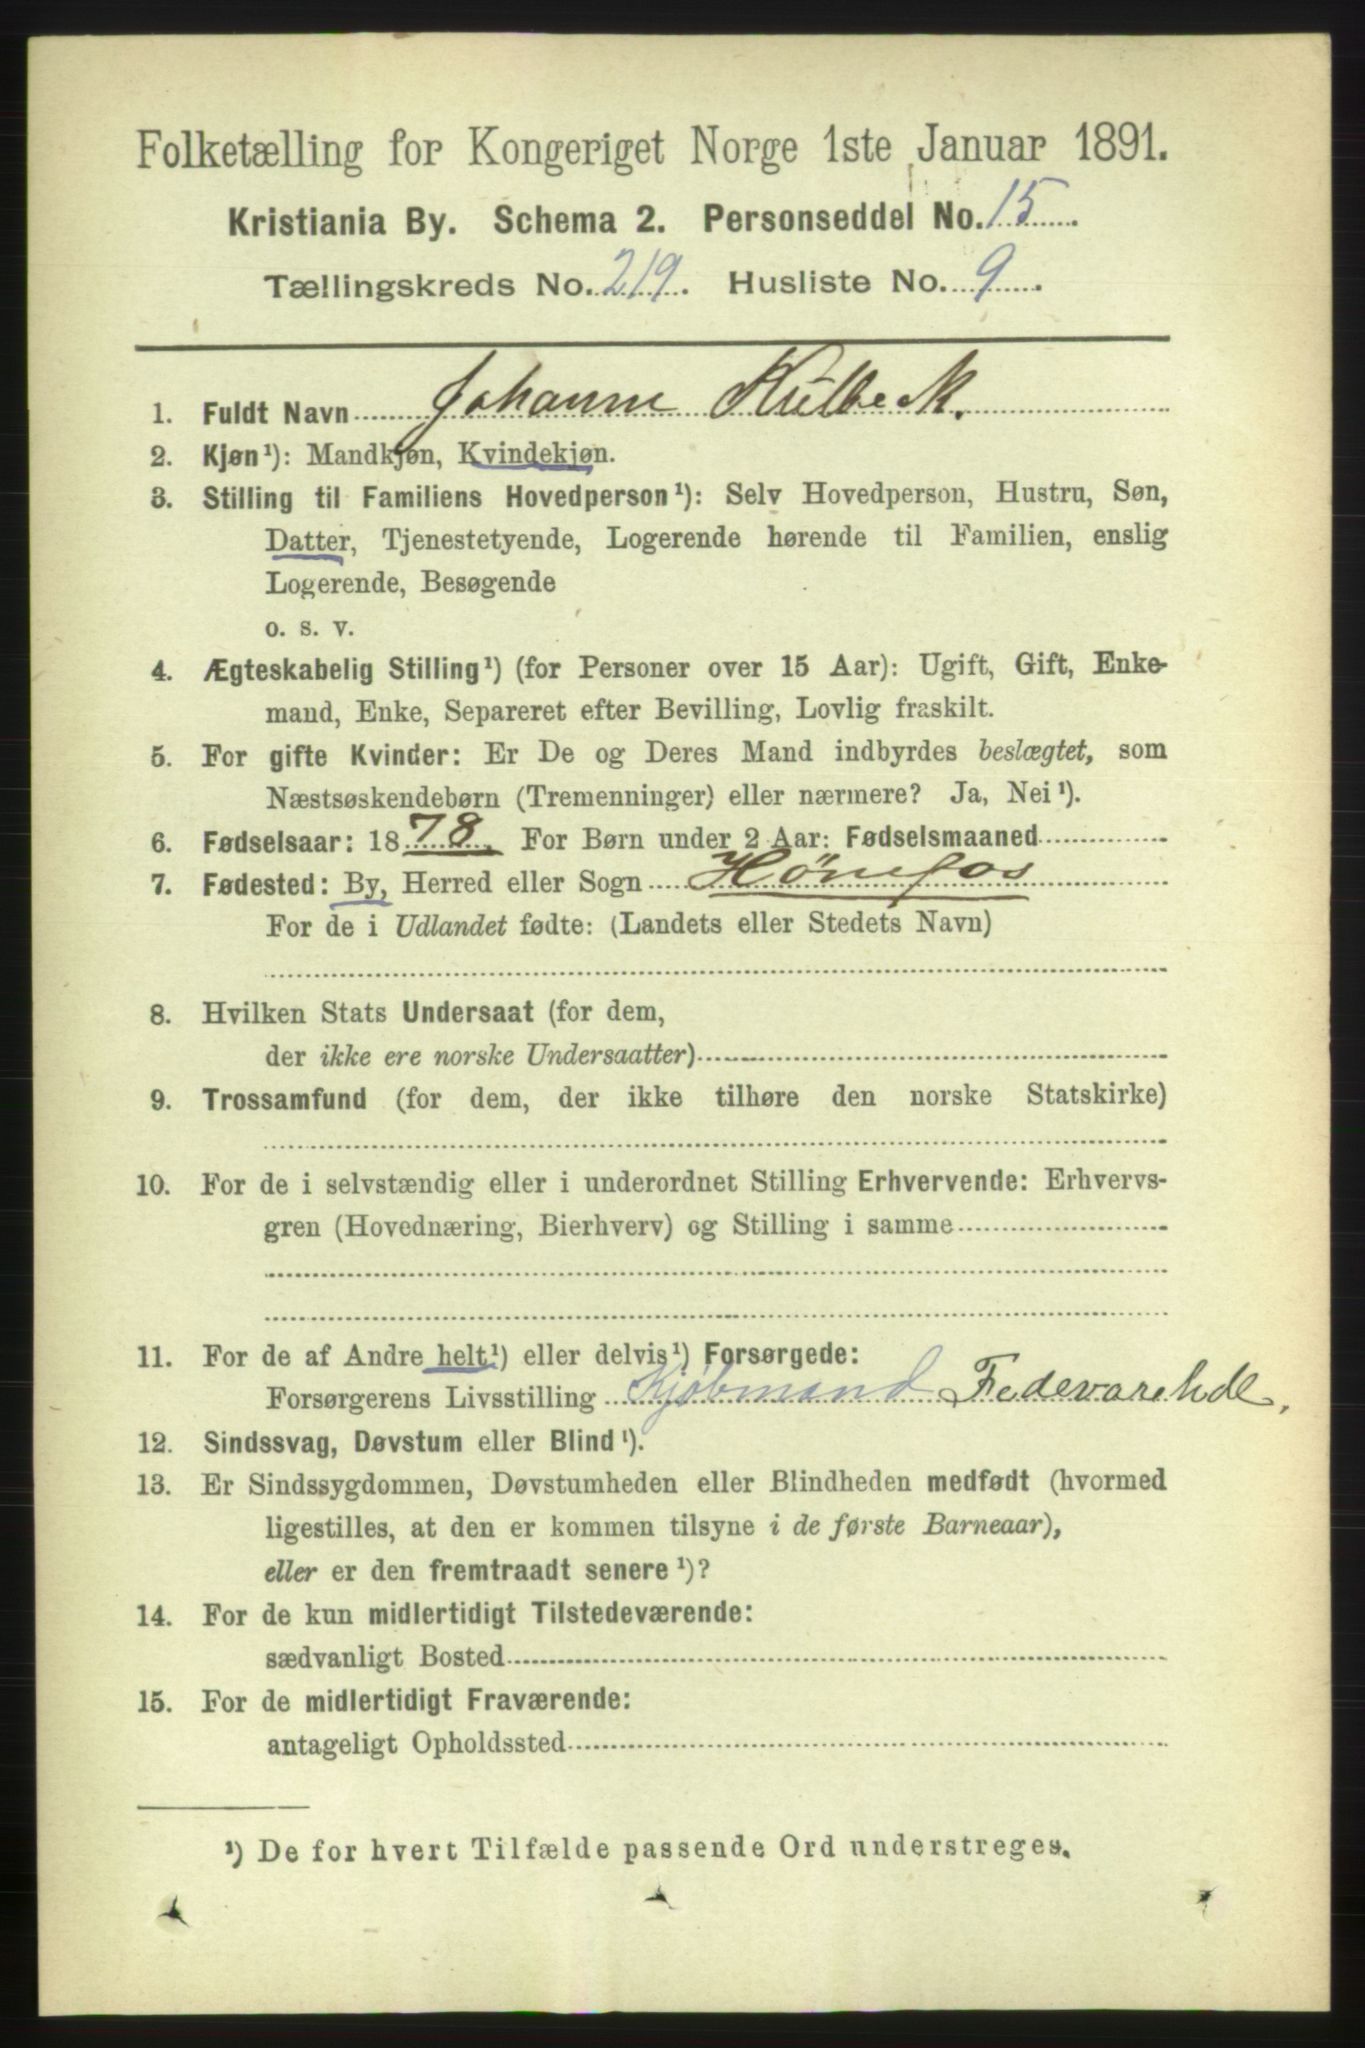 Folketælling for Kongeriget Norge 1ste Januar 1891.
Kristiania By. Schema 2. Personseddel No. 15.
Tællingskreds No. 219. Husliste No. 9.
1. Fuldt Navn Johanne Kulbeck.
2. Kjøn¹): Mandkjøn, Kvindekjøn.
3. Stilling til Familiens Hovedperson¹): Selv Hovedperson, Hustru, Søn,
Datter, Tjenestetyende, Logerende hørende til Familien, enslig
Logerende, Besøgende
o. s. v.
4. Ægteskabelig Stilling¹) (for Personer over 15 Aar): Ugift, Gift, Enke-
mand, Enke, Separeret efter Bevilling, Lovlig fraskilt.
5. For gifte Kvinder: Er De og Deres Mand indbyrdes beslægtet, som
Næstsøskendebørn (Tremenninger) eller nærmere? Ja, Nei¹).
6. Fødselsaar: 1878. For Børn under 2 Aar: Fødselsmaaned
7. Fødested: By, Herred eller Sogn Hønefos
For de i Udlandet fødte: (Landets eller Stedets Navn)
8. Hvilken Stats Undersaat (for dem,
der ikke ere norske Undersaatter)
9. Trossamfund (for dem, der ikke tilhøre den norske Statskirke)
10. For de i selvstændig eller i underordnet Stilling Erhvervende: Erhvervs-
gren (Hovednæring, Bierhverv) og Stilling i samme
11. For de af Andre helt¹) eller delvis¹) Forsørgede:
Forsørgerens Livsstilling Kjøbmand Fedevarehdl.
12. Sindssvag, Døvstum eller Blind¹).
13. Er Sindssygdommen, Døvstumheden eller Blindheden medfødt (hvormed
ligestilles, at den er kommen tilsyne i de første Barneaar),
eller er den fremtraadt senere¹)?
14. For de kun midlertidigt Tilstedeværende:
sædvanligt Bosted
15. For de midlertidigt Fraværende:
antageligt Opholdssted
¹) De for hvert Tilfælde passende Ord understreges.